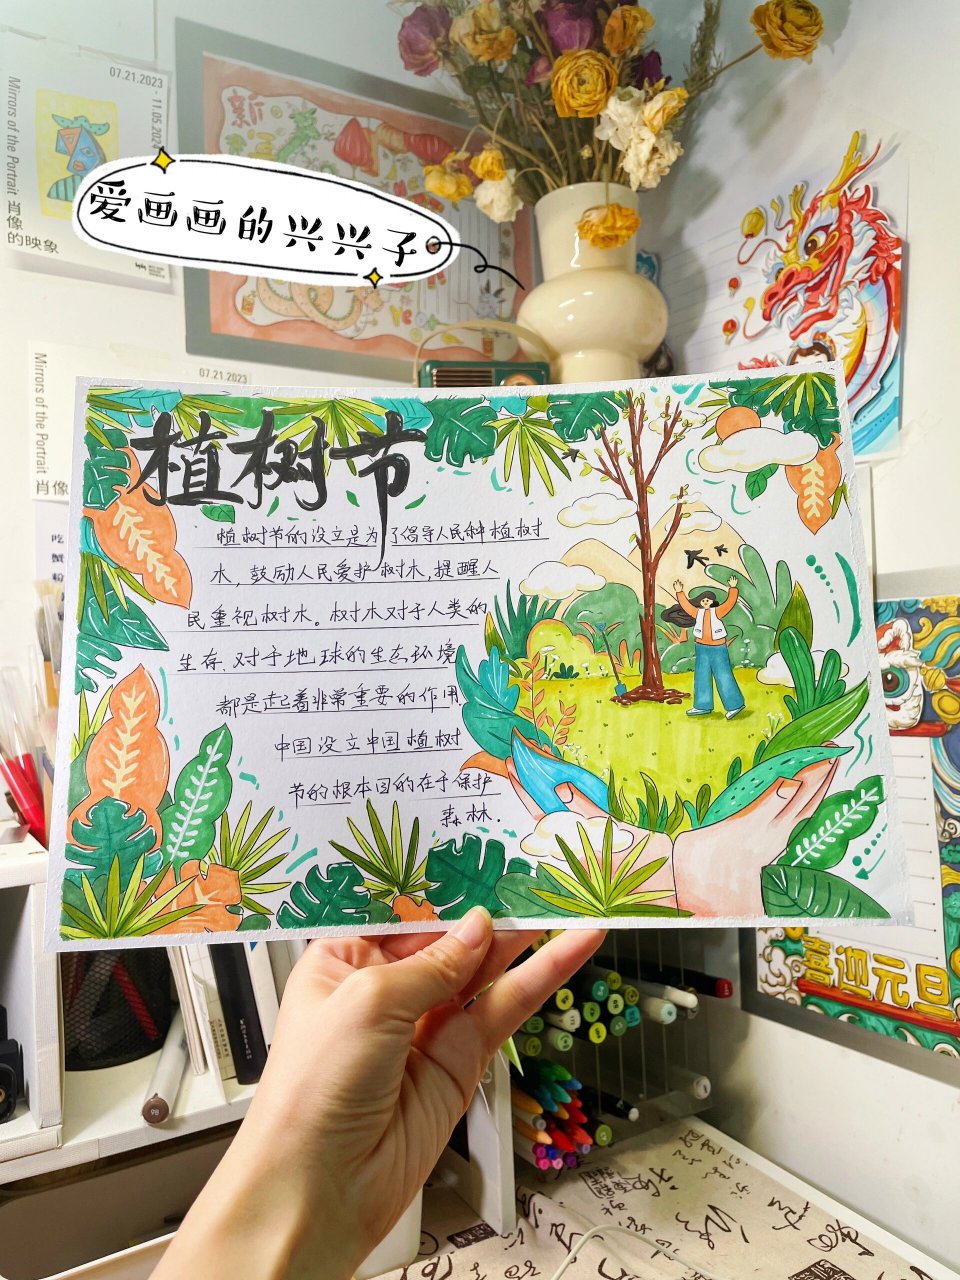 07.21.2023 - 11.05.202
Mirrors of the Portrait 肖像的映象
爱画画的兴兴子
新
07.21.2023
Mirrors of the Portrait
肖像
吃
蟹
粉
植树节
植树节的设立是为了倡导人民种植树
木，鼓励人民爱护树木，提醒人
民重视树木。树木对于人类的
生存、对于地球的生态环境
都是起着非常重要的作用
中国设立中国植树
节的根本目的在于保护
森林.
喜迎元旦
98